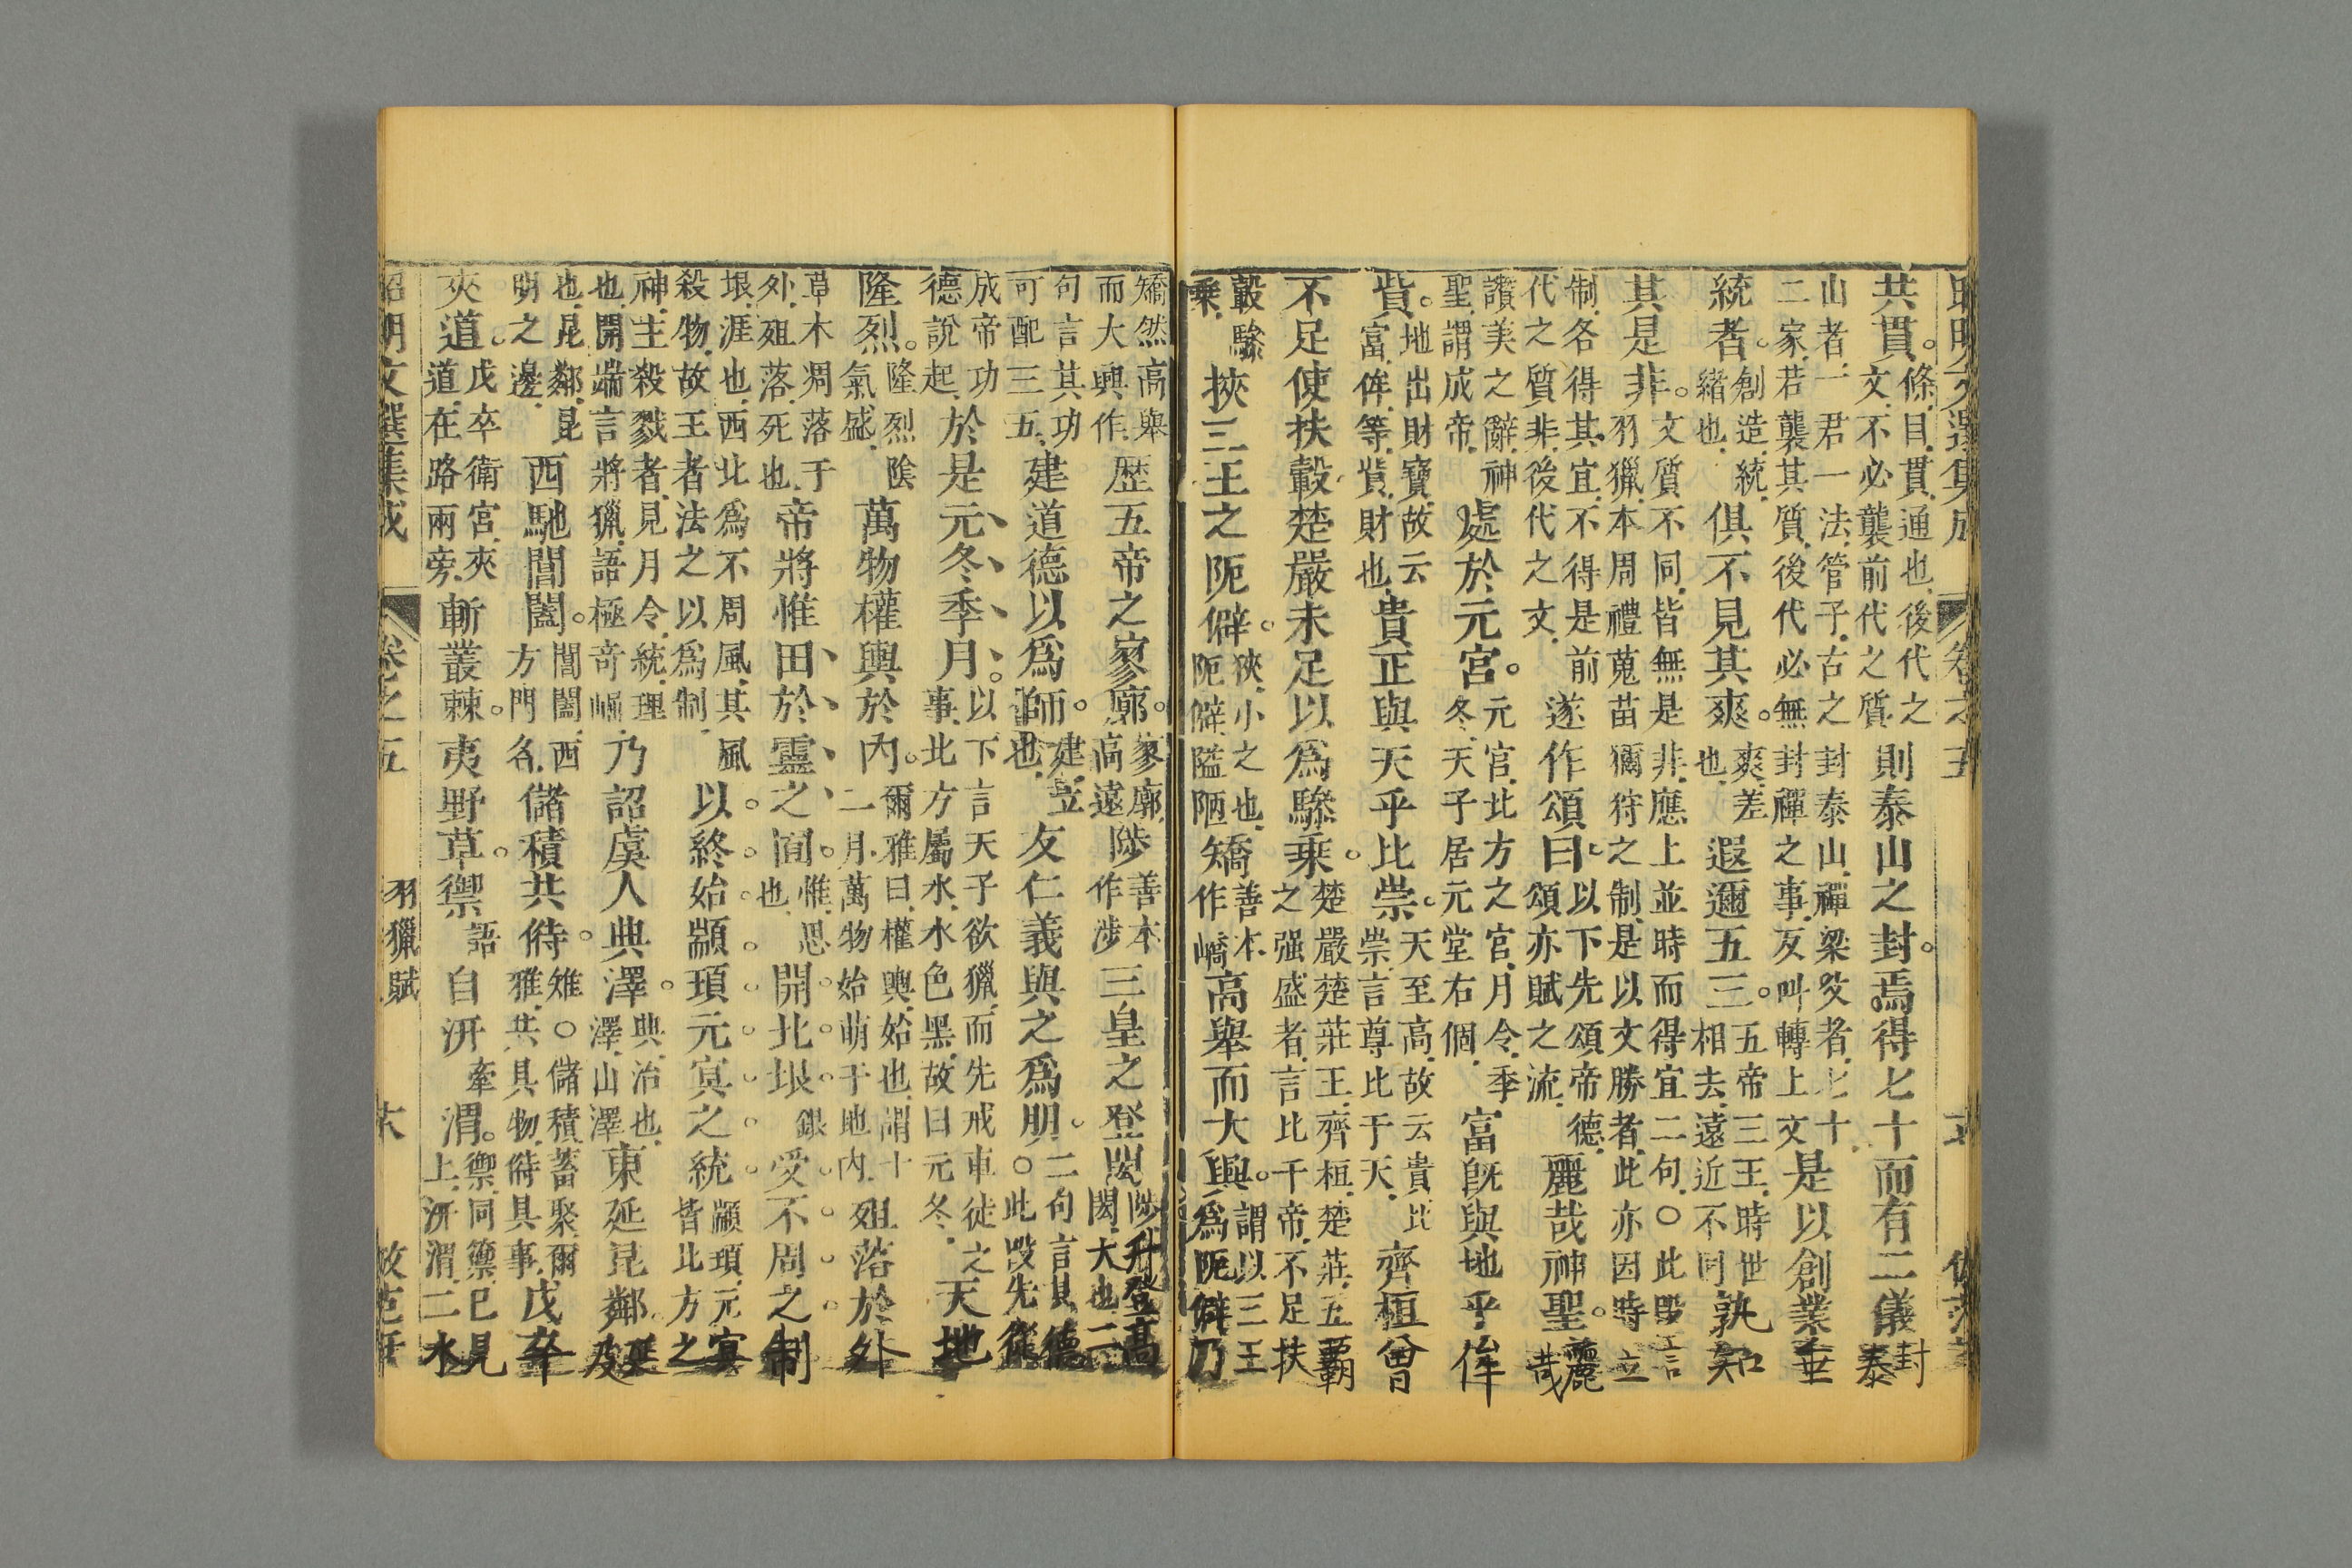 共貫。條目.貫通也.後代之文.不必襲前代之質則泰山之封。焉得七十而有二儀封泰
山者.一君一法.管子.古之封泰山.禪梁父者.七十二家.若襲其質.後代必無封禪之事.反叫轉上文是以創業垂
統者。創造.統緒也俱不見其爽。爽.差也遐邇五三。五帝三王.時世相去.遠近不同孰知
其是非。文質不同.皆無是非.應上並時而得宜二句.○此段言羽獵.本周禮蒐苗獮狩之制.是以文勝者.此亦因時立
制.各得其宜.不得是前代之質非.後代之文.遂作頌曰以下先頌帝德.頌亦賦之流.麗哉神聖。麗哉
讚美之辭.神聖.謂成帝.處於元宮。元宮.北方之官.月令.季冬.天子居元堂右個.富既與地乎侔
貲。地出財寶.故云富.侔.等.貲.財也.貴正與天乎比崇。天至高.故云貴比崇.言尊比于天.齊桓曾
不足使扶轂楚嚴未足以爲驂乘。楚嚴.楚莊王.齊桓.楚莊.五覇之强盛者.言比千帝.不足扶
轂驂乘.挾三王之阨僻。狹.小之也.阨僻.隘陋矯善本作嶠高舉而大興。謂以三王爲阨僻乃
矯然高舉而大興作.歷五帝之寥廓。寥廓.高遠陟善本作涉三皇之登閎陟.升.登.高.閎.大也.二
句言其功可配三五.建道德以爲師。建立也友仁義與之爲朋。二句言其德○此段先從
成帝功德說起.於是元冬季月。以下言天子欲獵.而先戒車徒之事.北方屬水.水色黑.故曰元冬.天地
隆烈。隆烈陰氣盛.萬物權輿於內。爾雅曰.權輿.始也.謂十二月.萬物始萌于地內.殂落於外
草木凋落于外.殂落.死也.帝將惟田於靈之囿。惟.思也.開北垠銀受不周之制
垠.涯也.西北爲不周風.其風殺物.故王者法之以爲制.以終始顓頊元冥之統顓頊.元冥皆北方之
神.主殺戮者.見月令.統.理也.開端言將獵.語極奇崛乃詔虞人典澤。典.治也.澤.山澤東延昆鄰延及
也.昆鄰.昆明之邊.西馳閶闔。閶闔.西方門名.儲積共偫。雉○儲積.蓄聚.爾雅.共具物.偫具事.戊卒
夾道。戊卒衛宮.夾道.在路兩旁.斬叢棘。夷野草。禦語自汧牽渭。禦.同籞.已見上.汧渭.二水
昭明文選集成 卷之五 羽獵賦